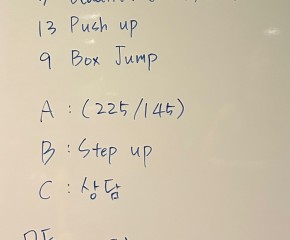 13 Push up
9 Box Jump
A : (225/145)
B : Step up
C : 상담